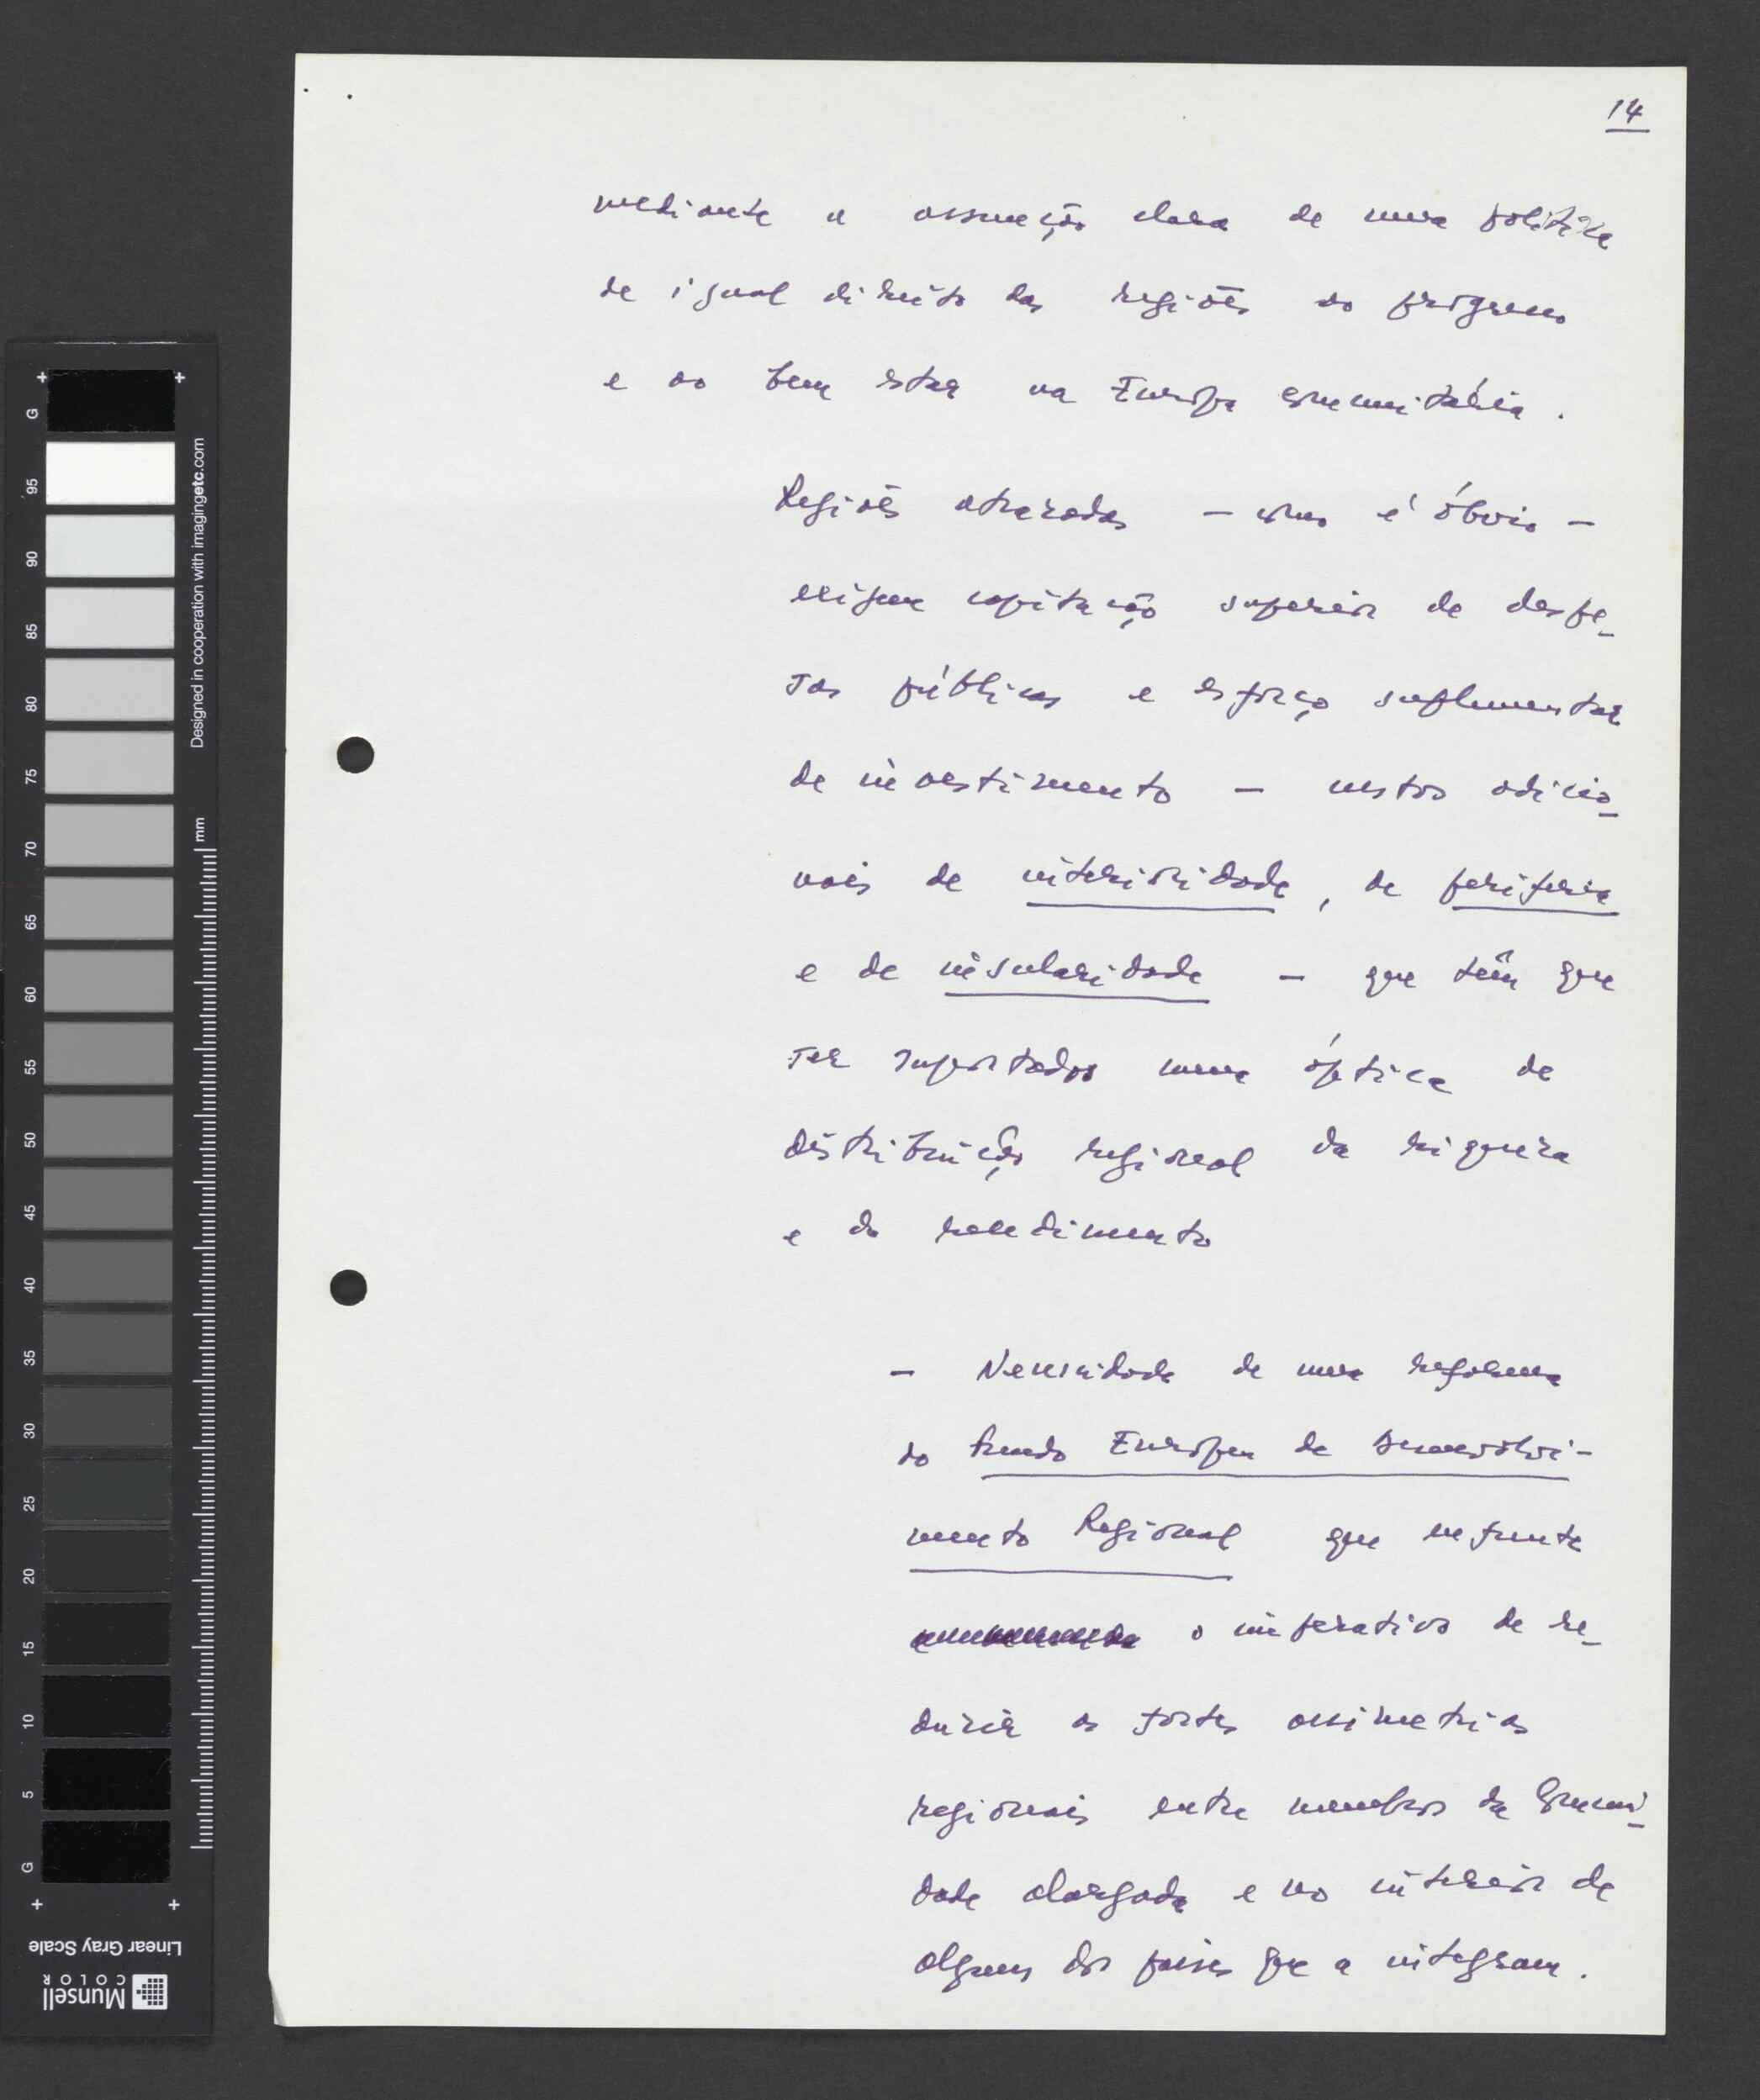 14
mediante a assunção clara de uma política
de igual direito das regiões ao progresso
e ao bem estar na Europa comunitária.
Regiões atrazadas – como é óbvio –
exigem capitação superior de despe-
sas públicas e esforço suplementar
de investimento – custos adicio-
nais de interioridade, de periferia
e de insularidade – que têm que
ser suportados numa óptica de
distribuição regional da riqueza
e do rendimento
– Necessidade de uma reforma
do Fundo Europeu de Desenvolvi-
mento Regional que enfrente
o imperativo de re-
duzir as fortes assimetrias
regionais entre membros da Comuni-
dade alargada e no interior de
alguns dos países que a integram.
G
95
90
85
80
75
70
65
60
55
50
45
40
35
30
25
20
15
10
5
G
Designed in cooperation with imagingetc.com
mm
Linear Gray Scale
Munsell
COLOR